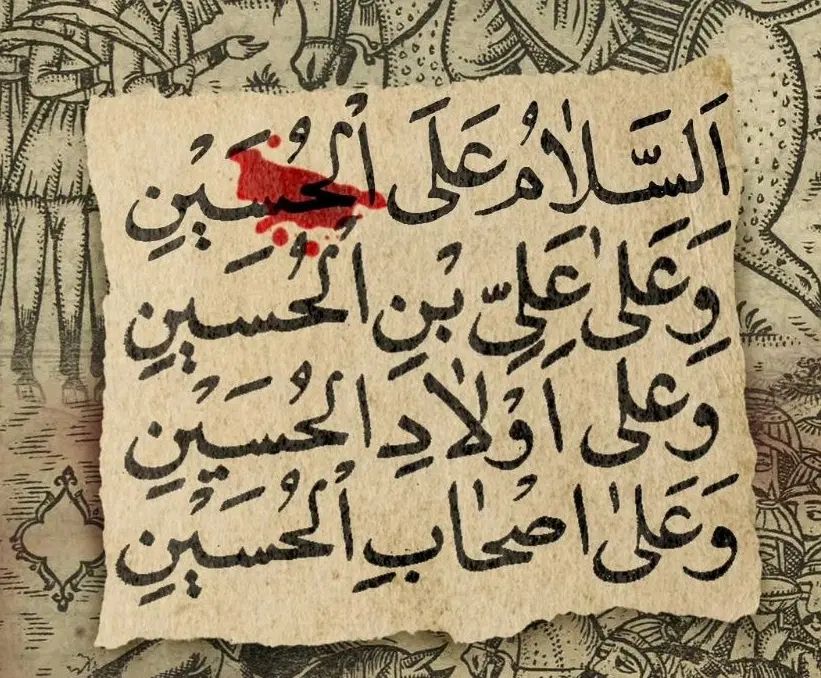 اَلسَّلاٰمُ عَلَى الْحُسَيْنِ
وَعَلىٰ عَلِيِّ بْنِ الْحُسَيْنِ
وَعَلى اَوْلاٰدِ الْحُسَيْنِ
وَعَلىٰ اَصْحٰابِ الْحُسَيْنِ